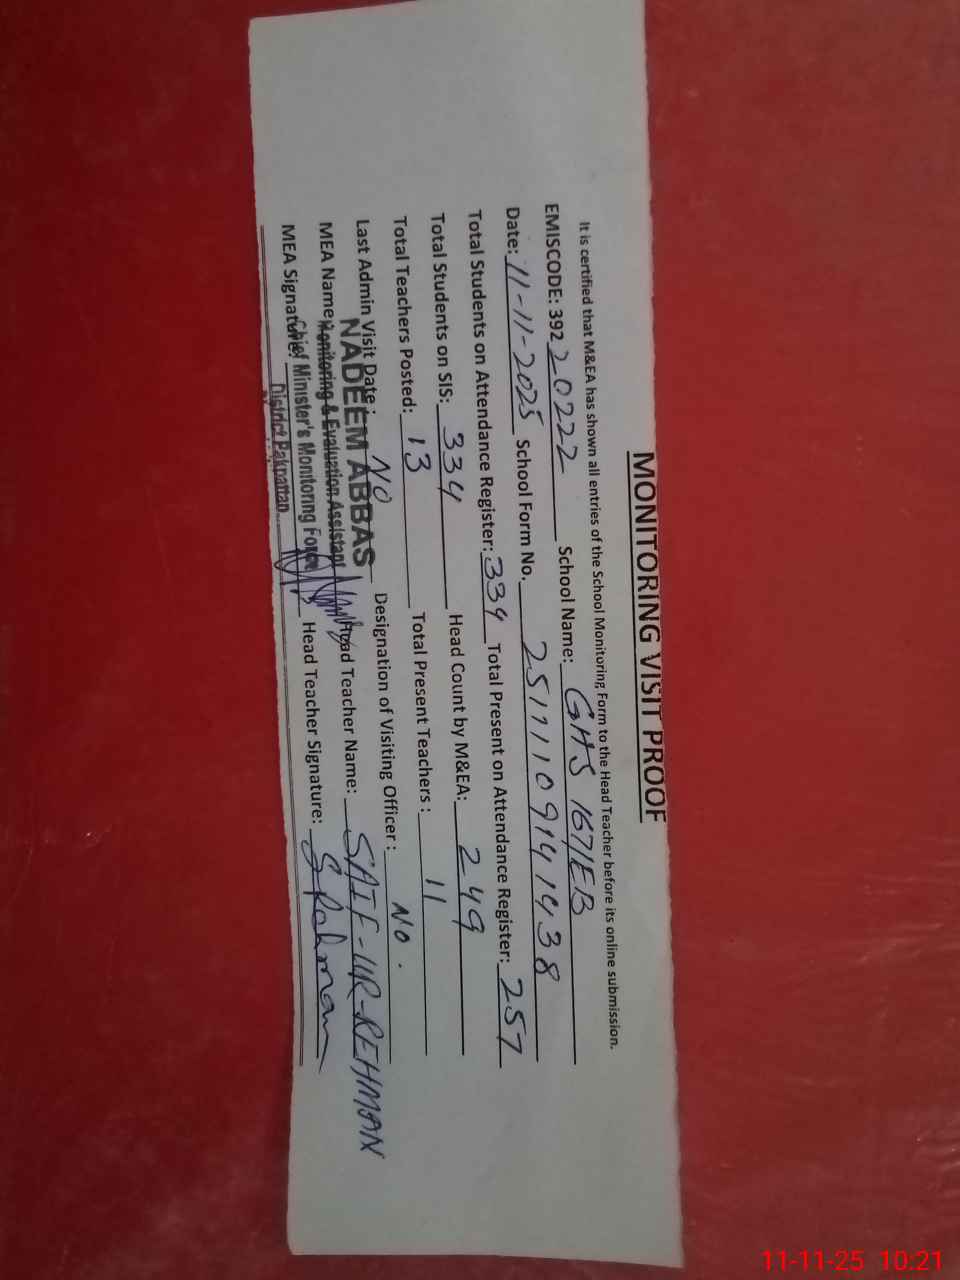 MONITORING VISIT PROOF
It is certified that M&EA has shown all entries of the School Monitoring Form to the Head Teacher before its online submission.
EMISCODE: 392 20222 School Name: GHS 167/EB
Date: 11-11-2025 School Form No. 2511110914 1438
Total Students on Attendance Register: 334 Total Present on Attendance Register: 257
Total Students on SIS: 334 Head Count by M&EA: 249
Total Teachers Posted: 13 Total Present Teachers : 11
Last Admin Visit Date : NO Designation of Visiting Officer : NO.
NADEEM ABBAS
MEA Name: Head Teacher Name: SAIF-UR-REHMAN
Monitoring & Evaluation Assistant
MEA Signature: Head Teacher Signature: S Rehman
Chief Minister's Monitoring Force
District Pakpattan
11-11-25 10:21